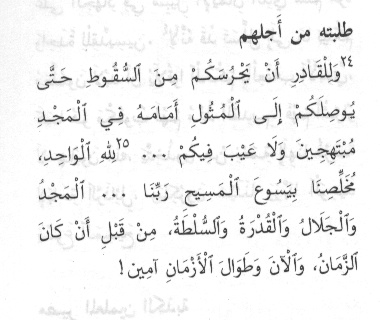 طلبته من أَجلهم
٢٤وَلِلْقَادِرِ أَنْ يَحْرُسَكُمْ مِنَ ٱلسُّقُوطِ حَتَّى
يُوصِلَكُمْ إِلَى ٱلْمُثُولِ أَمَامَهُ فِي ٱلْمَجْدِ
مُبْتَهِجِينَ وَلَا عَيْبَ فِيكُمْ ... ٢٥لِلهِ ٱلْوَاحِدِ،
مُخَلِّصِنَا بِيَسُوعَ ٱلْمَسِيحِ رَبِّنَا ... ٱلْمَجْدُ
وَٱلْجَلَالُ وَٱلْقُدْرَةُ وَٱلسُّلْطَةُ، مِنْ قَبْلِ أَنْ كَانَ
ٱلزَّمَانُ، وَٱلْآنَ وَطَوَالَ ٱلْأَزْمَانِ آمِين!